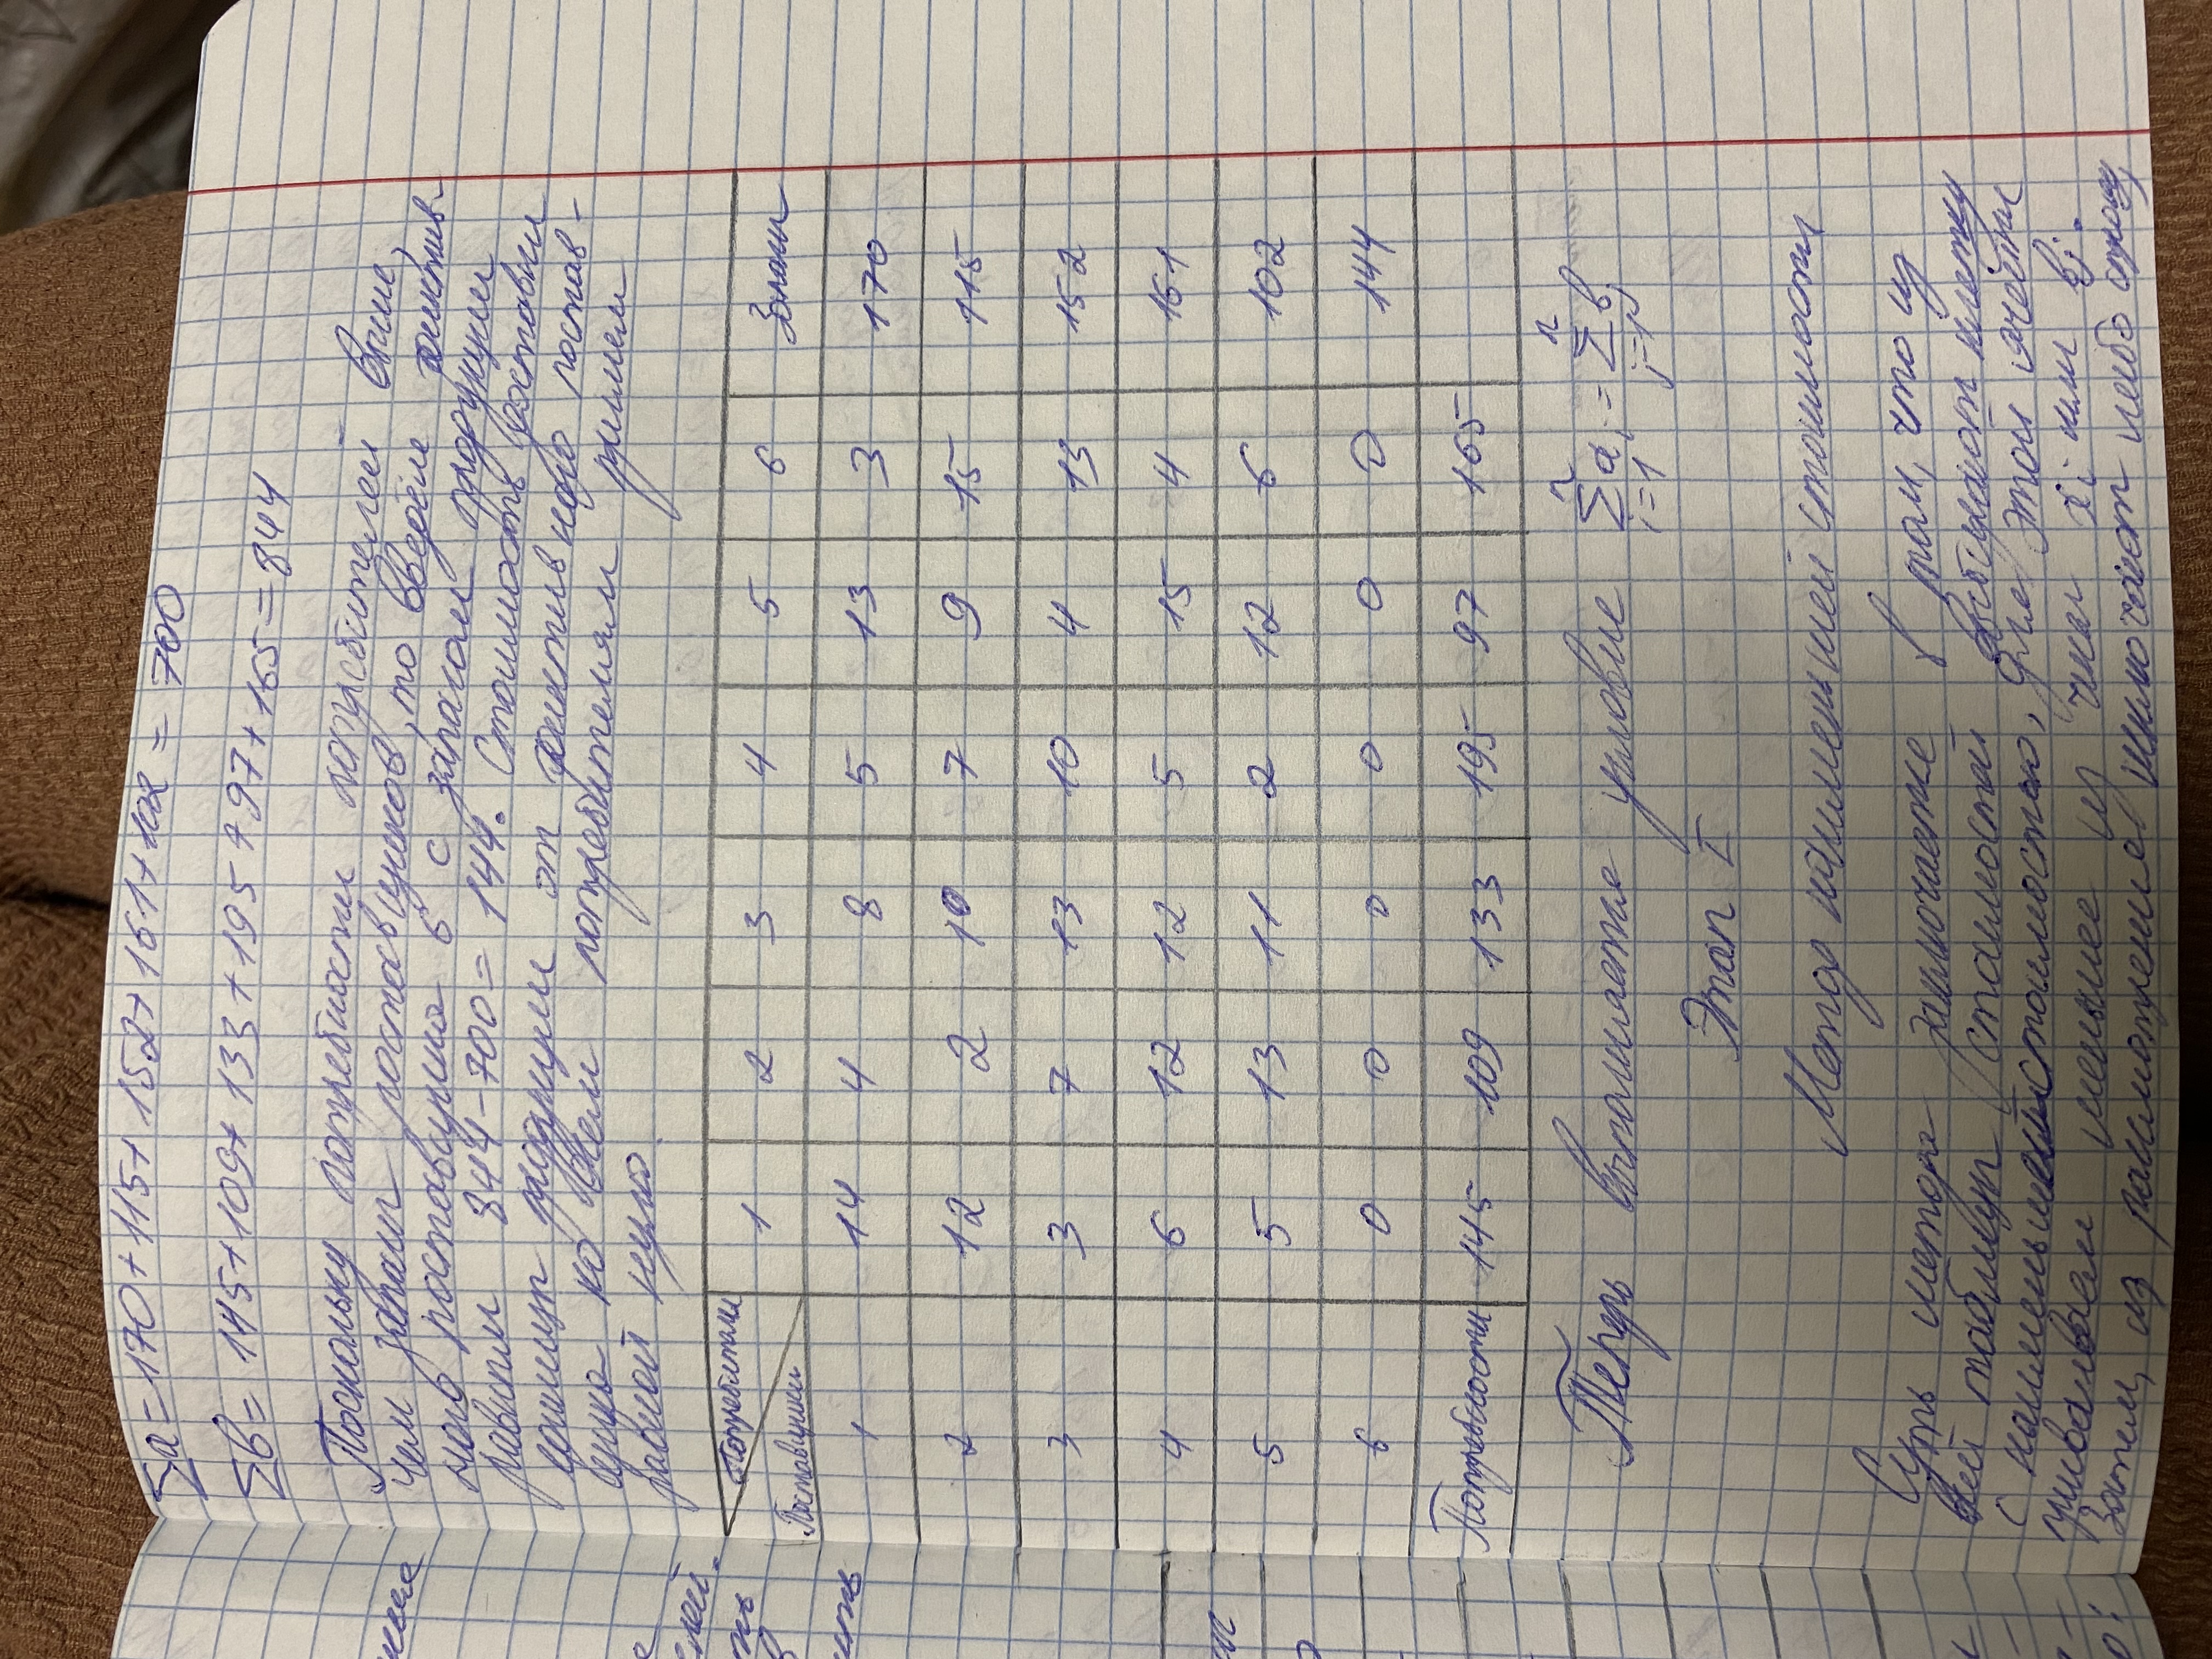 ∑a=170+115+152+161+102=700
∑в=145+109+133+195+97+165=844
Поскольку потребности потребителей выше,
чем запасы поставщиков, то введём фиктив-
ного поставщика 6 с запасом продукции
равным 844-700=144. Стоимость доставки
единицы продукции от фиктивного постав-
щика ко всем потребителям примем
равной нулю.
Потребители 1 2 3 4 5 6 Запасы
Поставщики
1 14 4 8 5 13 3 170
2 12 2 10 7 9 15 115
3 3 7 13 10 4 13 152
4 6 12 12 5 15 4 161
5 5 13 11 2 12 6 102
6 0 0 0 0 0 0 144
Потребности 145 109 133 195 97 165
Теперь выполняется условие n∑i=1 ai = n∑j=1 вj
Этап I
Метод наименьшей стоимости
Суть метода заключается в том, что из
всей таблицы стоимостей выбирают клетку
с наименьшей стоимостью, для этой ячейки
меньшее из чисел или вj.
Затем, из рассмотрения исключают либо строку,